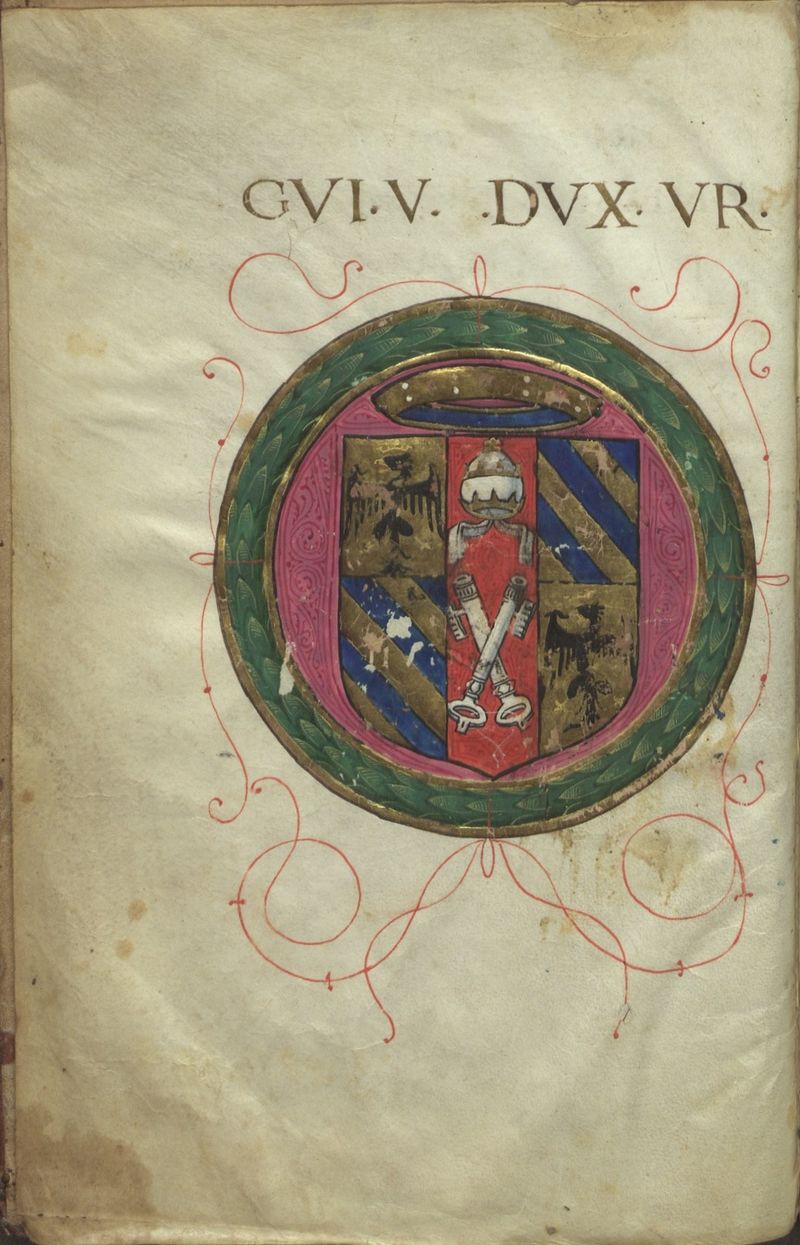 GVI·V· ·DVX· VR·